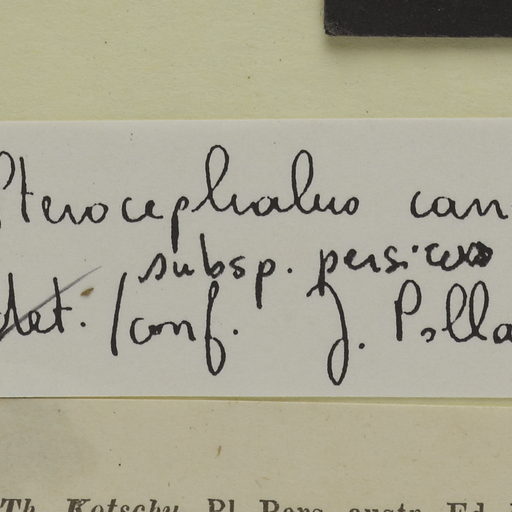 Pterocephalus can
subsp. persicus
det. /conf. J. Polla
Th. Kotschy. Pl. Pers. austr. Ed.